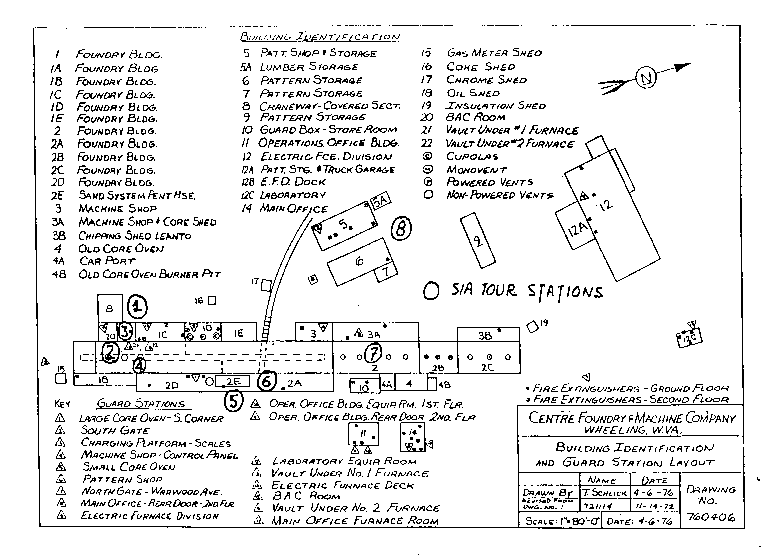 BUILDING IDENTIFICATION
1 FOUNDRY BLDG.
1A FOUNDRY BLDG
1B FOUNDRY BLDG.
1C FOUNDRY BLDG.
1D FOUNDRY BLDG
1E FOUNDRY BLDG.
2 FOUNDRY BLDG.
2A FOUNDRY BLDG.
2B FOUNDRY BLDG.
2C FOUNDRY BLDG.
2D FOUNDRY BLDG.
2E SAND SYSTEM PENT HSE.
3 MACHINE SHOP
3A MACHINE SHOP & CORE SHED
3B CHIPPING SHED LEANTO
4 OLD CORE OVEN
4A CAR PORT
4B OLD CORE OVEN BURNER PIT
5 PATT. SHOP & STORAGE
5A LUMBER STORAGE
6 PATTERN STORAGE
7 PATTERN STORAGE
8 CRANEWAY-COVERED SECT.
9 PATTERN STORAGE
10 GUARD BOX-STORE ROOM
11 OPERATIONS OFFICE BLDG.
12 ELECTRIC FCE. DIVISION
12A PATT. STG. & TRUCK GARAGE
12B E.F.D. DOCK
12C LABORATORY
14 MAIN OFFICE
15 GAS METER SHED
16 COKE SHED
17 CHROME SHED
18 OIL SHED
19 INSULATION SHED
20 BAC ROOM
21 VAULT UNDER #1 FURNACE
22 VAULT UNDER #2 FURNACE
CUPOLAS
MONOVENT
POWERED VENTS
NON-POWERED VENTS
N
5A
5
8
6
7
9
12
12A
SIA TOUR STATIONS
17
16
8
1
3
1C
1E
3
3A
3B
19
12C
2
4
7
2
2B
2C
15
1B
2D
2E
6
2A
10
4A
4
4B
5
KEY GUARD STATIONS
LARGE CORE OVEN-S. CORNER
SOUTH GATE
CHARGING PLATFORM-SCALES
MACHINE SHOP-CONTROL PANEL
SMALL CORE OVEN
PATTERN SHOP
NORTH GATE-WARWOOD AVE.
MAIN OFFICE-REAR DOOR-2ND FLR
ELECTRIC FURNACE DIVISION
OPER. OFFICE BLDG. EQUIP. RM. 1ST. FLR.
OPER. OFFICE BLDG. REAR DOOR 2ND. FLR
11
14
LABORATORY EQUIP ROOM
VAULT UNDER NO. 1 FURNACE
ELECTRIC FURNACE DECK
BAC ROOM
VAULT UNDER NO. 2 FURNACE
MAIN OFFICE FURNACE ROOM
FIRE EXTINGUISHERS-GROUND FLOOR
FIRE EXTINGUISHERS-SECOND FLOOR
CENTRE FOUNDRY & MACHINE COMPANY
WHEELING, W.VA.
BUILDING IDENTIFICATION
AND GUARD STATION LAYOUT
NAME DATE
DRAWN BY T SCHLICK 4-6-76
REVISED FROM DWG. NO. 1 721114 11-14-72
SCALE: 1"=80'-0" DATE: 4-6-76
DRAWING NO.
760406